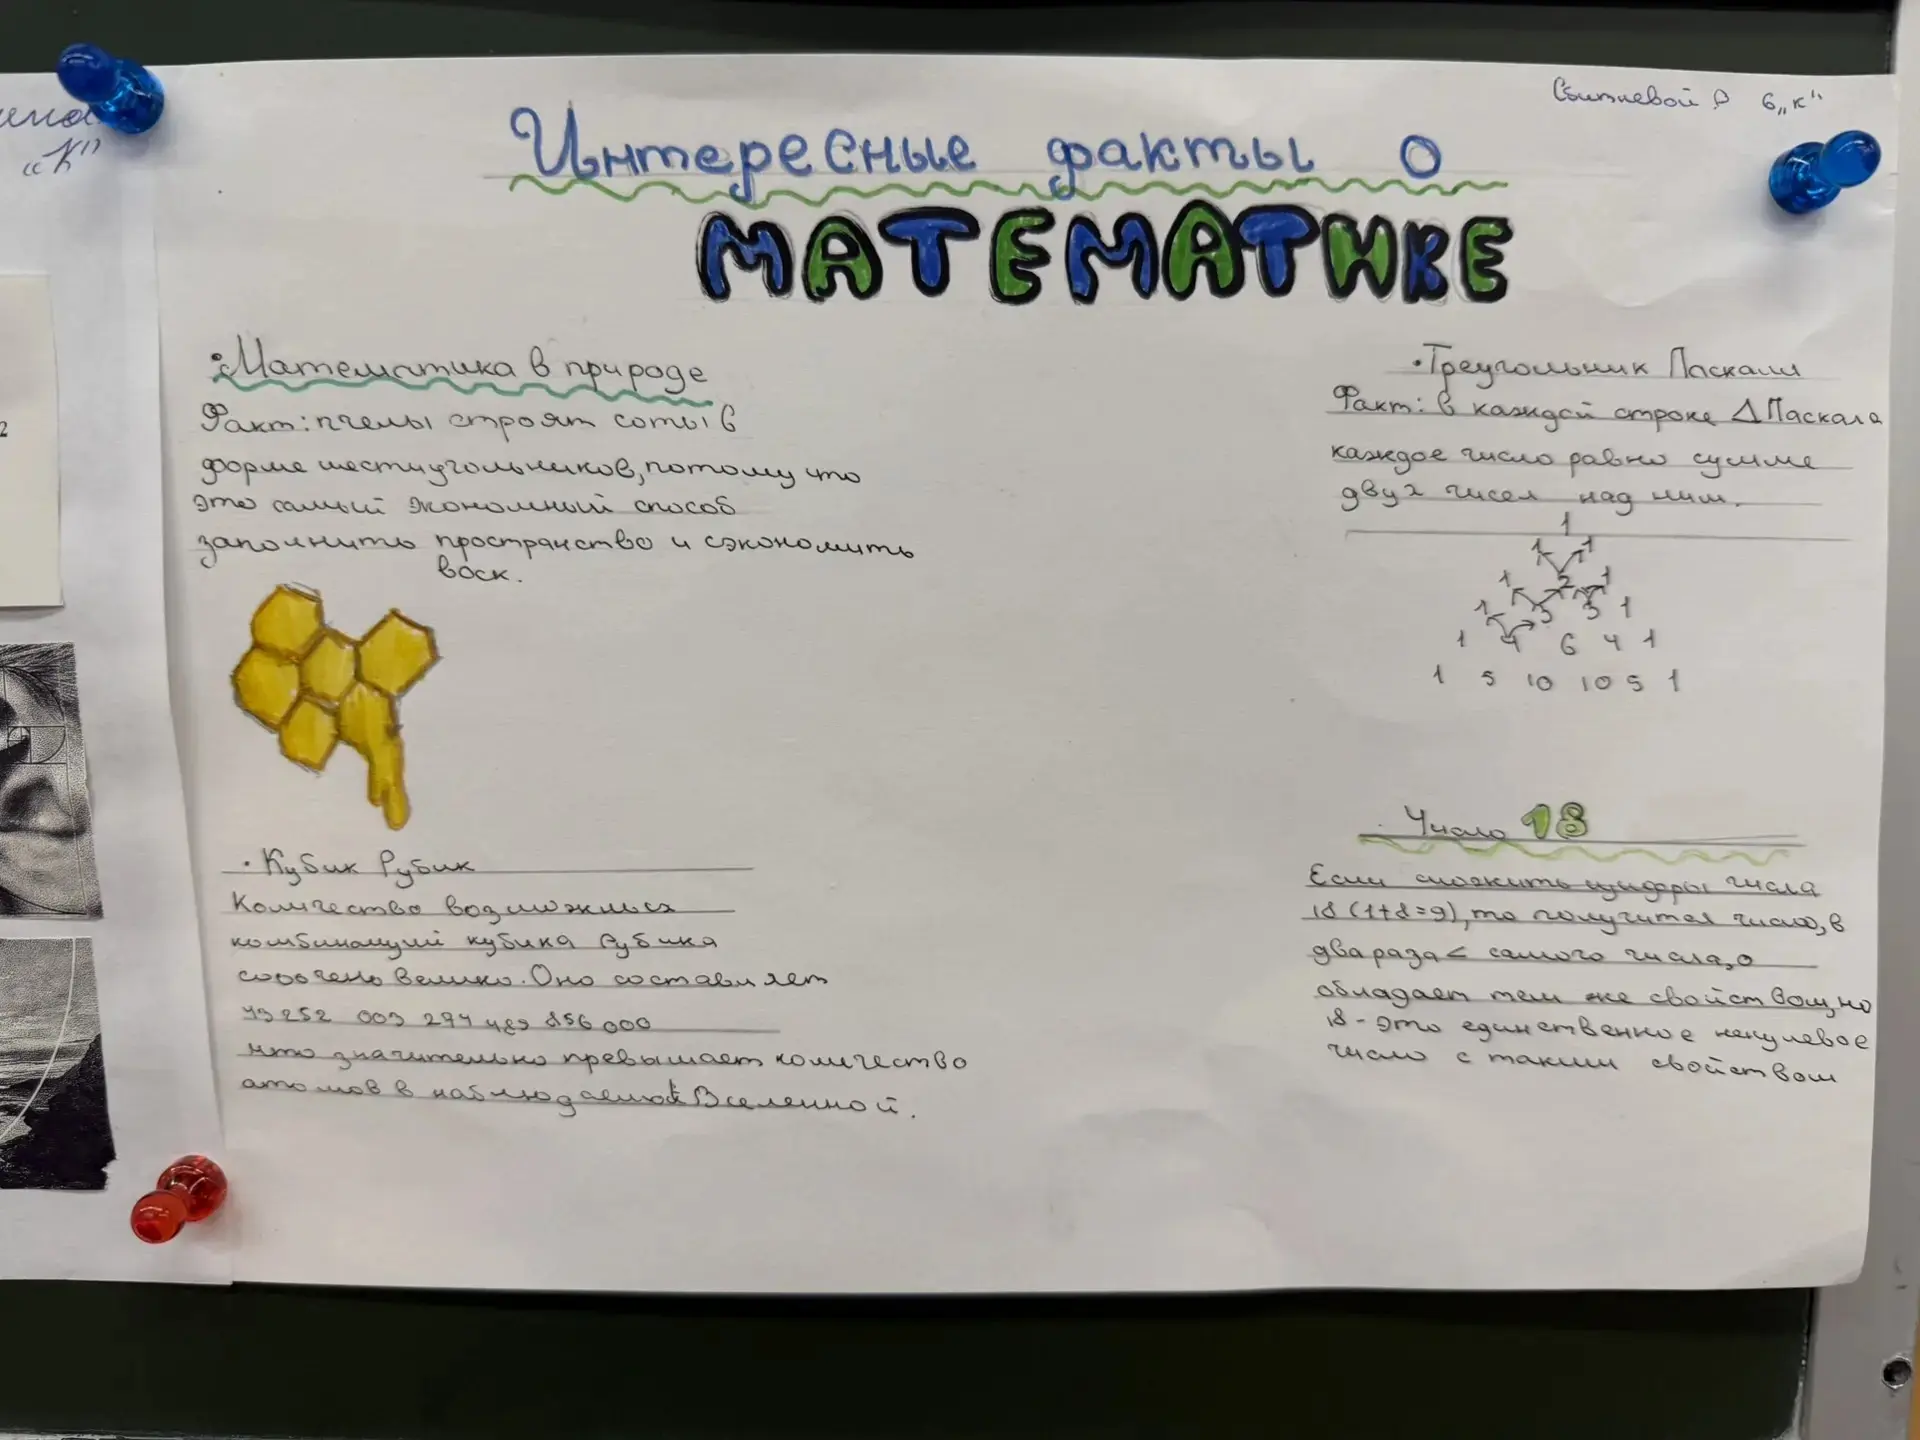 ена
"К"
2
Сбитневой Р 6„к"
Интересные факты о
МАТЕМАТИКЕ
•Математика в природе
Факт: пчелы строят соты в
форме шестиугольников, потому что
это самый экономный способ
заполнить пространство и сэкономить
воск.
•Треугольник Паскаля
Факт: в каждой строке Δ Паскаля
каждое число равно сумме
двух чисел над ним.
1
1 1
1 2 1
1 3 3 1
1 4 6 4 1
1 5 10 10 5 1
• Кубик Рубик
Количество возможных
комбинаций кубика Рубика
очень велико. Оно составляет
43 252 003 274 489 856 000
что значительно превышает количество
атомов в наблюдаемой Вселенной.
. Число 18
Если сложить цифры числа
18 (1+8=9), то получится число, в
два раза < самого числа, 0
обладает тем же свойством, но
18 - это единственное ненулевое
число с таким свойством